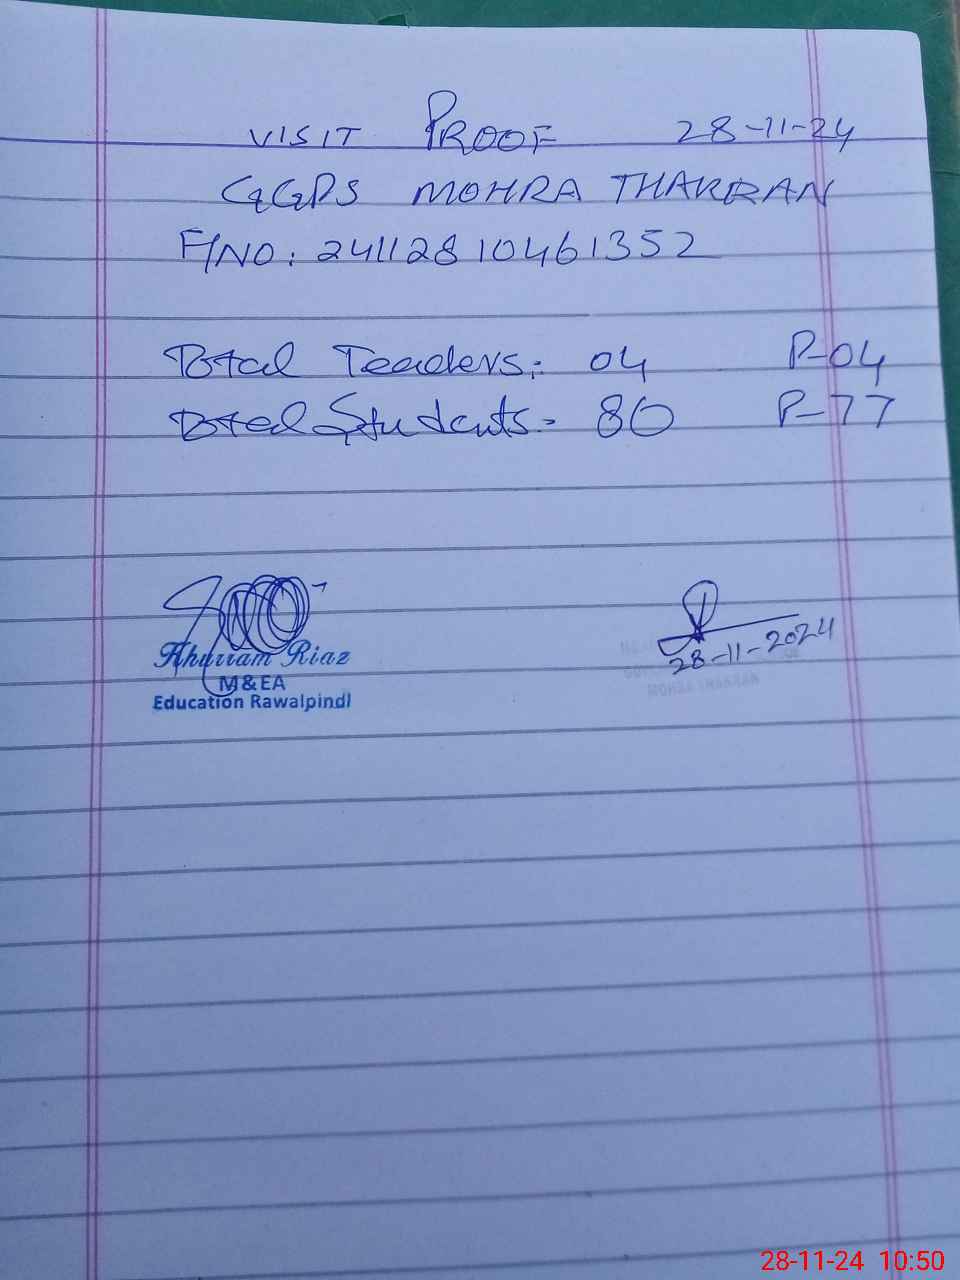 VISIT PROOF 28-11-24
GGPS MOHRA THAKRAN
F/NO: 24112810461352
Total Teachers: 04 P-04
Total Students- 80 P-77
Khurram Riaz
M&EA
Education Rawalpindi
28-11-2024
MOHRA THAKRAN
28-11-24 10:50